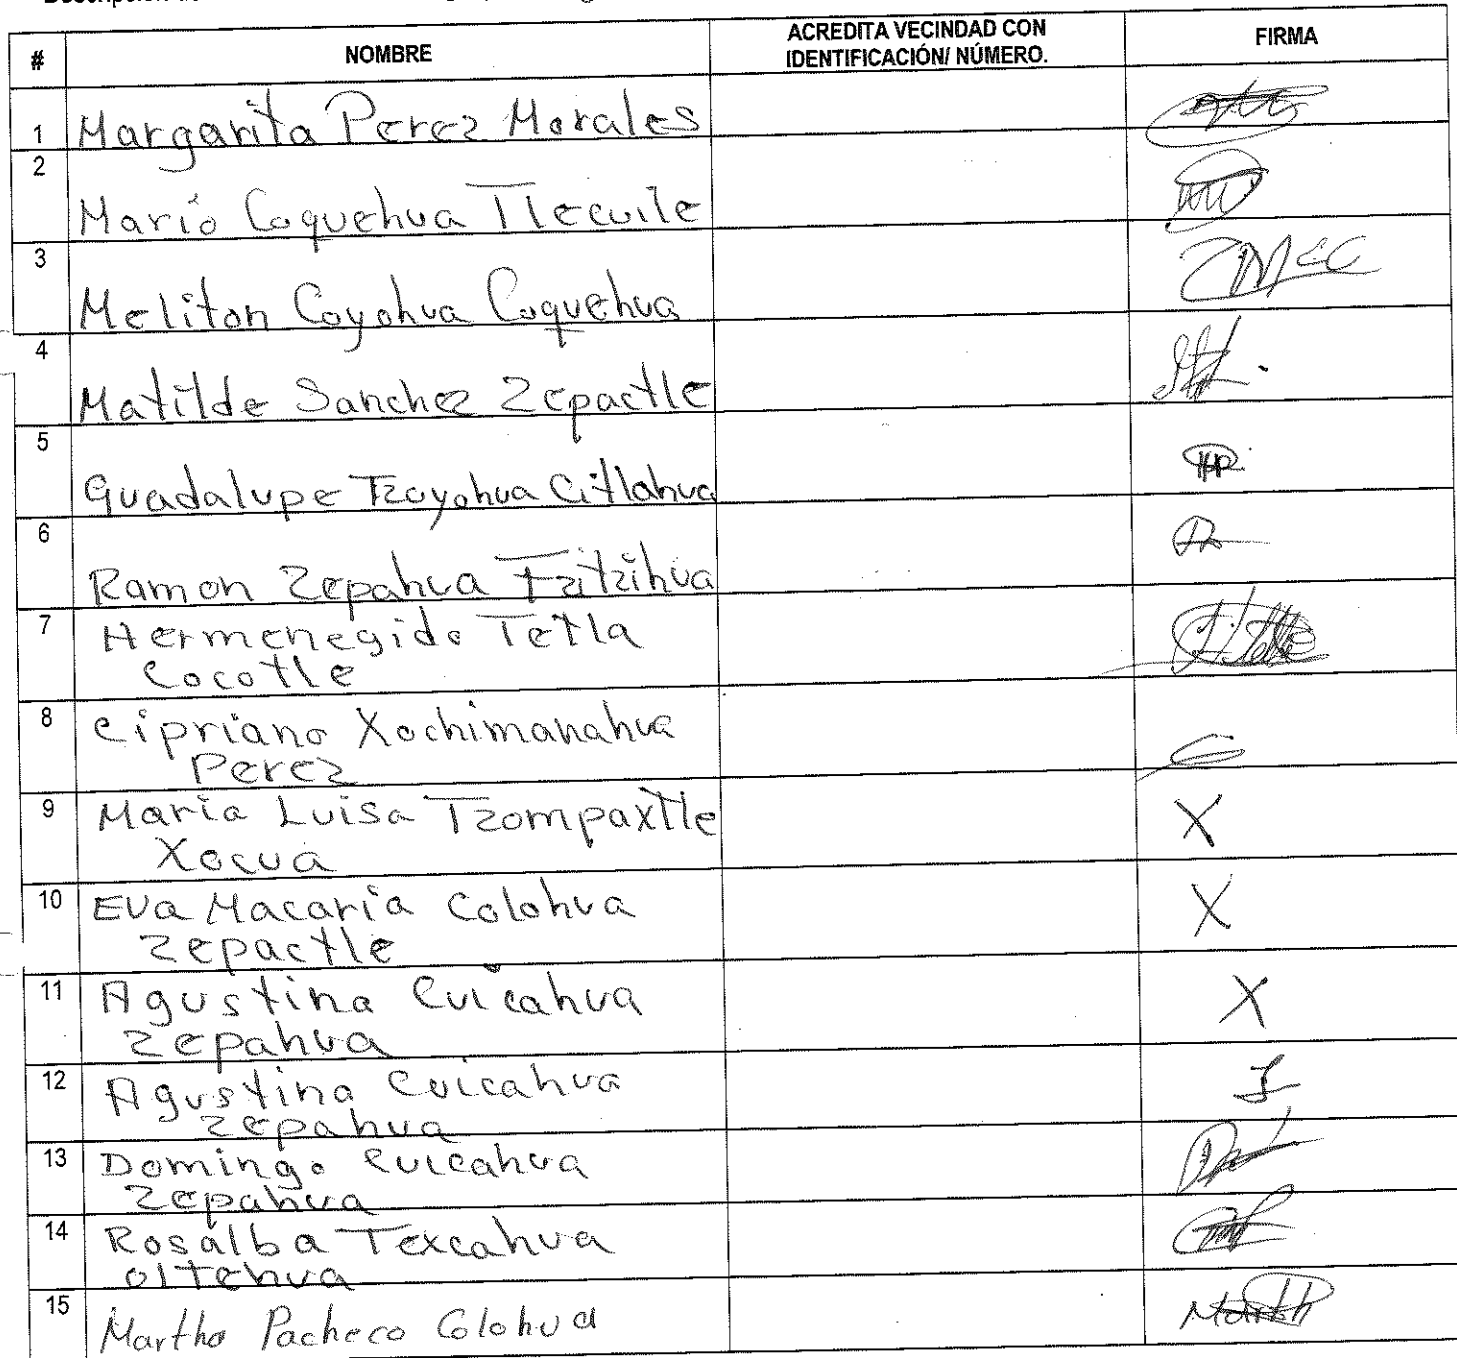 # NOMBRE ACREDITA VECINDAD CON IDENTIFICACIÓN/ NÚMERO. FIRMA
1 Margarita Perez Morales
2 Mario Coquehua Tlecuile
3 Meliton Coyohua Coquehua
4 Matilde Sanchez Zepactle
5 Guadalupe Tzoyohua Citlahua
6 Ramon Zepahua Tzitzihua
7 Hermenegido Tetla
Cocotle
8 Cipriano Xochimanahua
Perez
9 Maria Luisa Tzompaxtle X
Xocua
10 Eva Macaria Colohua X
Zepactle
11 Agustina Cuicahua X
Zepahua
12 Agustina Cuicahua
Zepahua
13 Domingo Cuicahua
Zepahua
14 Rosalba Texcahua
Oltehua
15 Martha Pacheco Colohua